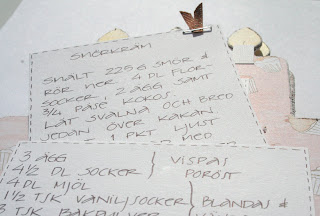 SMÖRKRÄM
SMÄLT 225 G SMÖR &
RÖR NER 4 DL FLOR-
SOCKER, 2 ÄGG SAMT
3/4 PÅSE KOKOS.
LÅT SVALNA OCH BRED
SEDAN ÖVER KAKAN.
1 PKT LJUST
MED
3 ÄGG } VISPAS
4 1/2 DL SOCKER } PORÖST
4 DL MJÖL
1 1/2 TSK VANILJSOCKER } BLANDAS &
3 TSK BAKPULVER